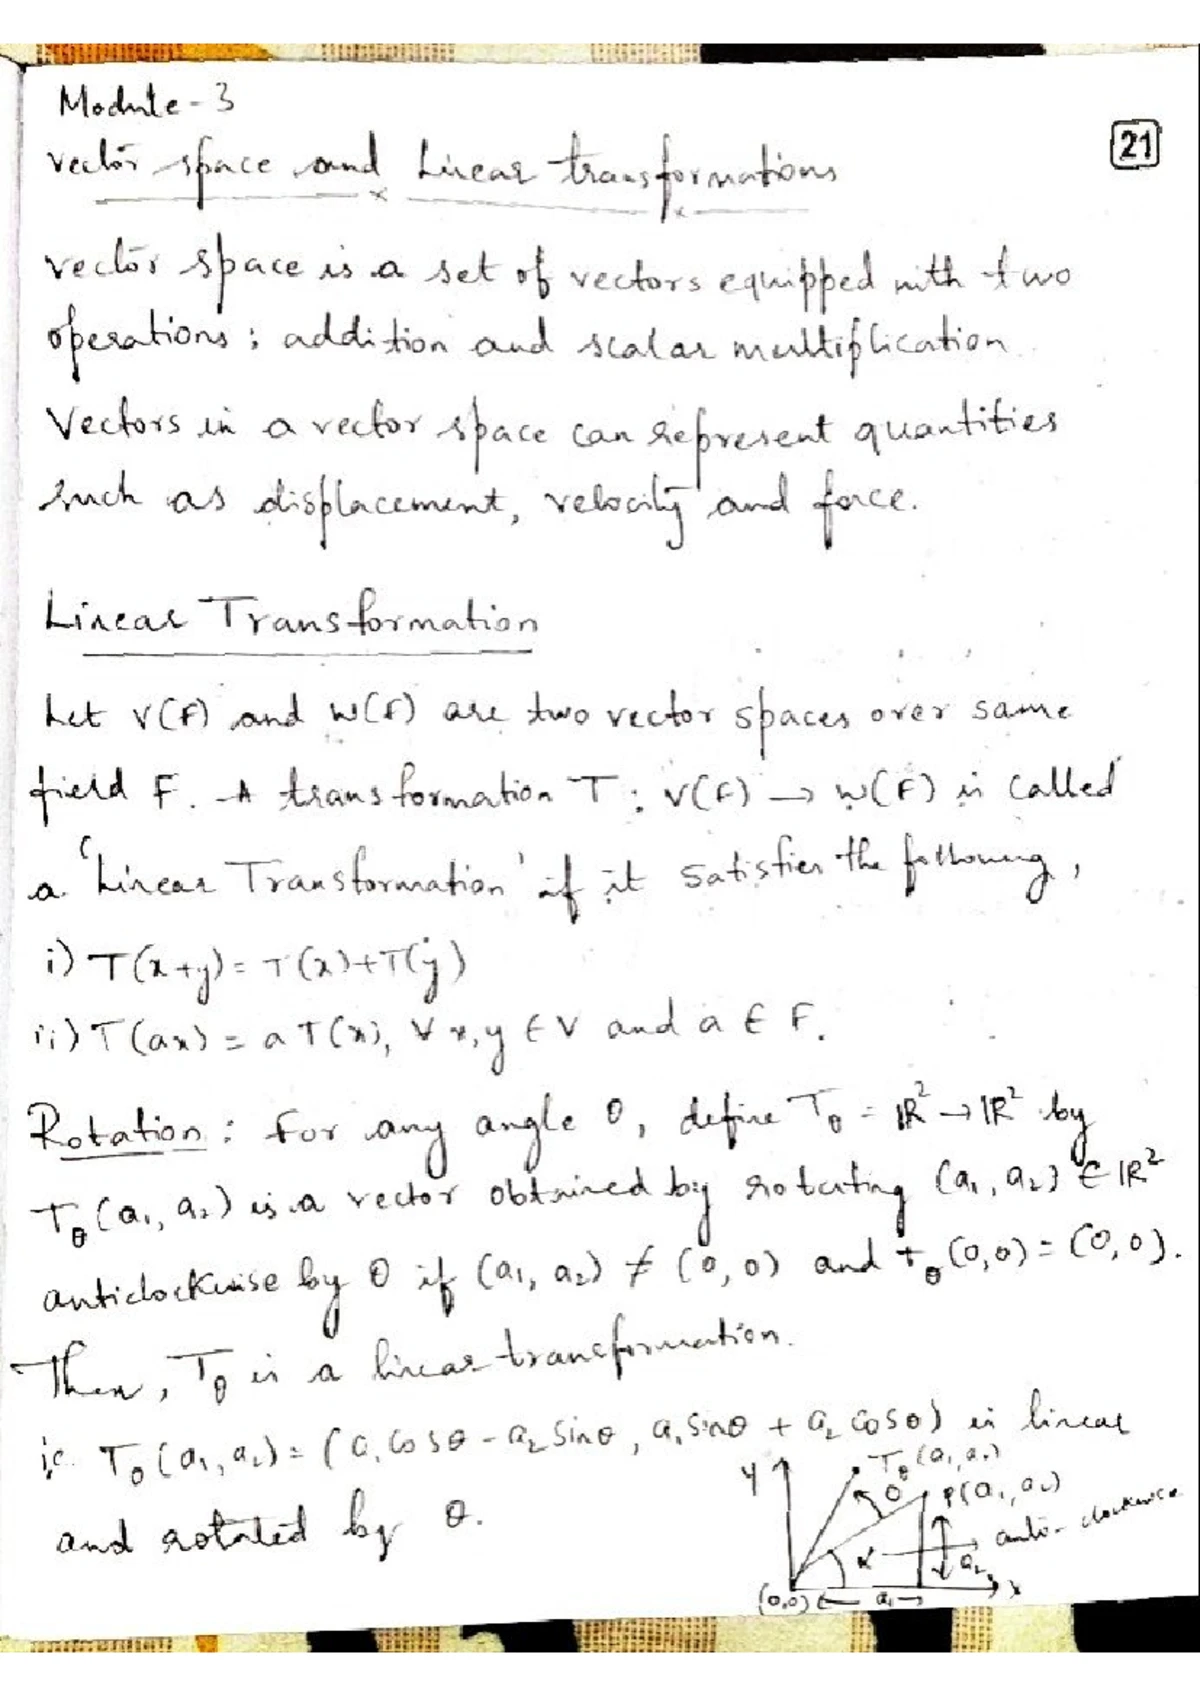 Module-3
21
Vector space and Linear transformations
Vector space is a set of vectors equipped with two
operations; addition and scalar multiplication.
Vectors in a vector space can represent quantities
such as displacement, velocity and force.
Linear Transformation
Let V(F) and W(F) are two vector spaces over same
field F. A transformation T : V(F) → W(F) is called
a 'Linear Transformation' if it satisfies the following,
i) T(x+y) = T(x)+T(y)
ii) T(ax) = a T(x), ∀ x,y ∈ V and a ∈ F.
Rotation: For any angle θ, define T_θ = ℝ² → ℝ² by
T_θ(a₁, a₂) is a vector obtained by rotating (a₁, a₂) ∈ ℝ²
anticlockwise by θ if (a₁, a₂) ≠ (0,0) and T_θ(0,0) = (0,0).
Then, T_θ is a linear transformation.
i.e. T_θ(a₁,a₂) = (a₁cosθ - a₂sinθ, a₁sinθ + a₂cosθ) is linear
and rotated by θ.
y
T_θ(a₁,a₂)
θ
P(a₁,a₂)
anti-clockwise
α
a₂
x
(0,0)
a₁